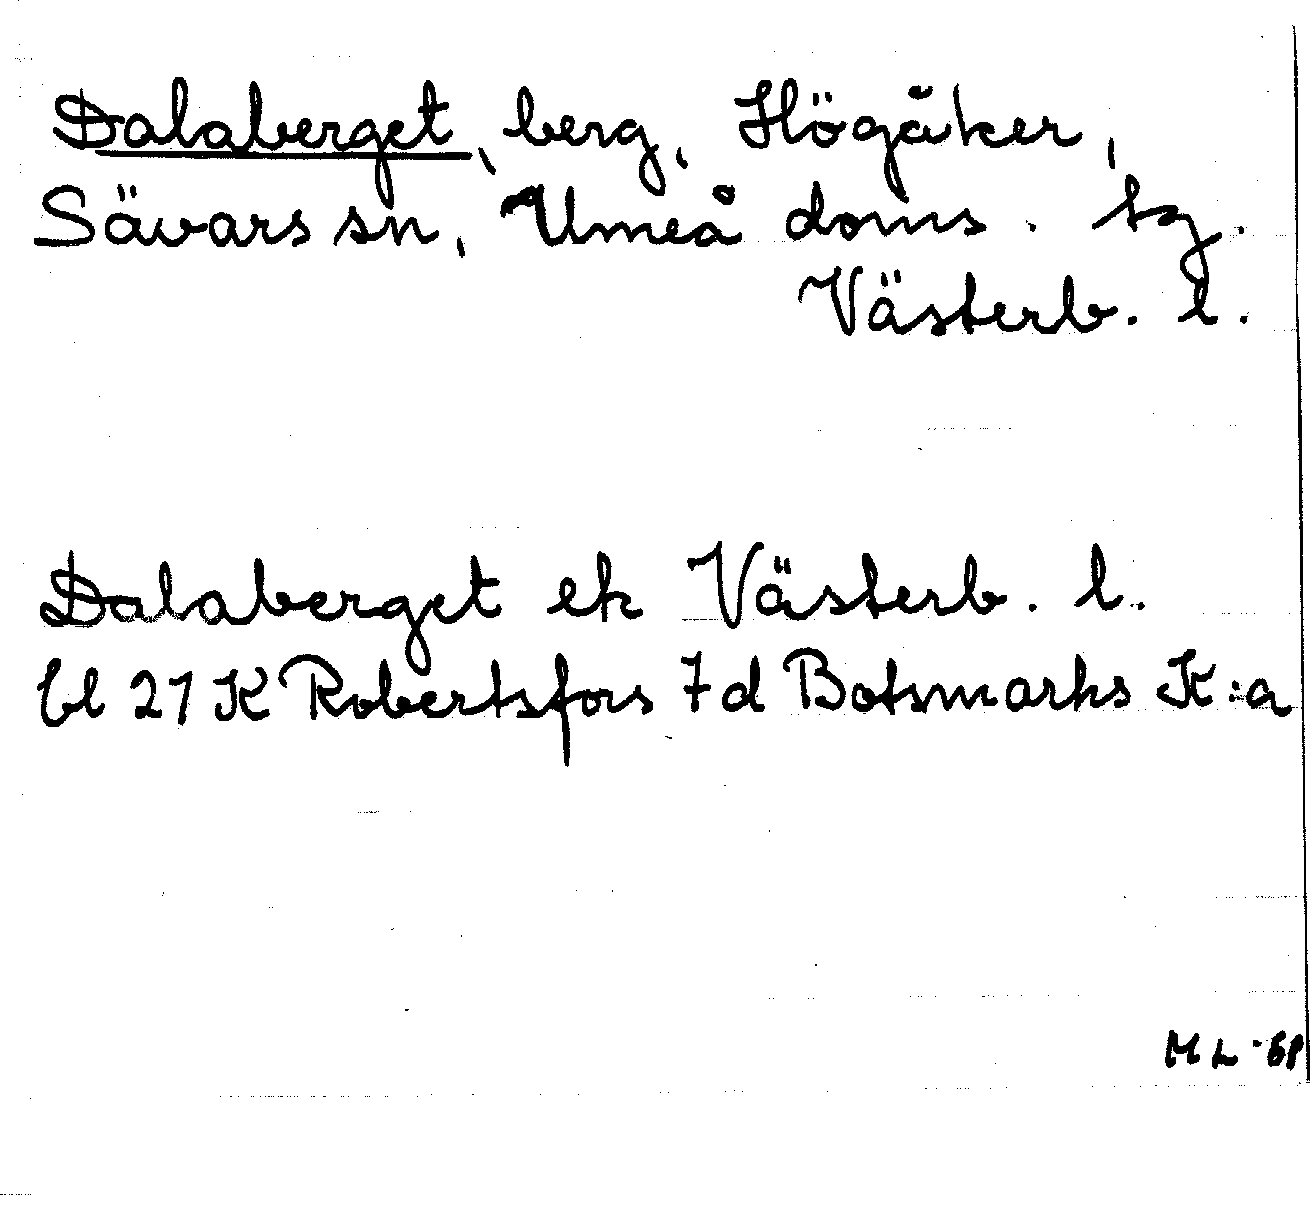 Dalaberget, berg, Högåker,
Sävars sn, Umeå doms. tg.
Västerb. l.
Dalaberget ek Västerb. l.
bl 21 K Robertsfors 7d Botsmarks K:a
ML -68